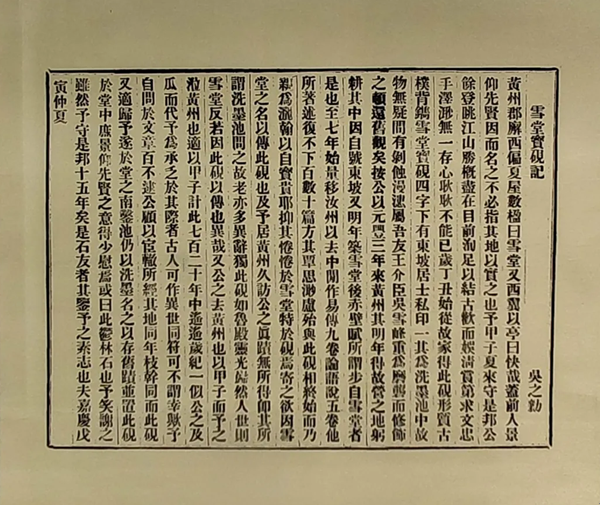 雪堂寶硯記 吳之勷
黃州郡廨西偏夏屋數楹曰雪堂又西翼以亭曰快哉蓋前人景
仰先賢因而名之不必指其地以實之也予甲子夏來守是邦公
餘登眺江山勝概盡在目前洵足以結古歡而娛清賞第求文忠
手澤渺無一存心耿耿不能已歲丁丑始從故家得此硯形質古
樸背鐫雪堂寶硯四字下有東坡居士私印一其爲洗墨池中故
物無疑間有剝蝕漫漶屬吾友王介臣吳雪峰重爲磨礱而修飾
之頓還舊觀矣按公以元豐三年來黃州其明年得故營之地躬
耕其中因自號東坡又明年築雪堂後赤壁賦所謂步自雪堂者
是也至七年始量移汝州以去中閒作易傳九卷論語說五卷他
所著述復不下百數十篇方其覃思渺慮殆與此硯相終始而乃
親爲灑翰以自寶貴耶抑其惓惓於雪堂特於硯焉寄之欲因雪
堂之名以傳此硯也及予居黃州久訪公之眞蹟無所得仰其所
謂洗墨池問之故老亦多異辭獨此硯如魯殿靈光巋然人世則
雪堂反若因此硯以傳也異哉又公之去黃州也以甲子而予之
涖黃州也適以甲子計此七百二十年中遙遙歲紀一似公之及
瓜而代予爲承乏於其際者古人可作異世同符可不謂幸歟予
自問於文章百不逮公顧以宦轍所經其地同年枝幹同而此硯
又適歸予遂於堂之南鑿池仍以洗墨名之以存舊蹟並置此硯
於堂中庶景仰先賢之意得少慰焉或曰此鬱林石也予笑謝之
雖然予守是邦十五年矣是石友者其鑒予之素志也夫嘉慶戊
寅仲夏